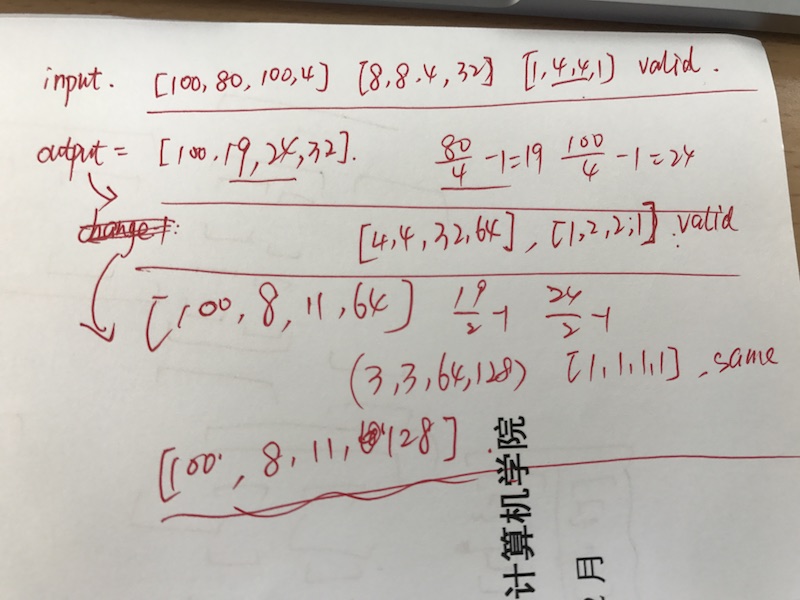 input. [100, 80, 100, 4] [8, 8, 4, 32] [1, 4, 4, 1] valid.
output = [100, 19, 24, 32]. 80/4 -1=19 100/4 -1=24
change 1: [4, 4, 32, 64], [1, 2, 2, 1]. valid
[100, 8, 11, 64] 19/2 -1 24/2 -1
(3, 3, 64, 128) [1, 1, 1, 1], same
[100, 8, 11, 128]
计算机学院
月